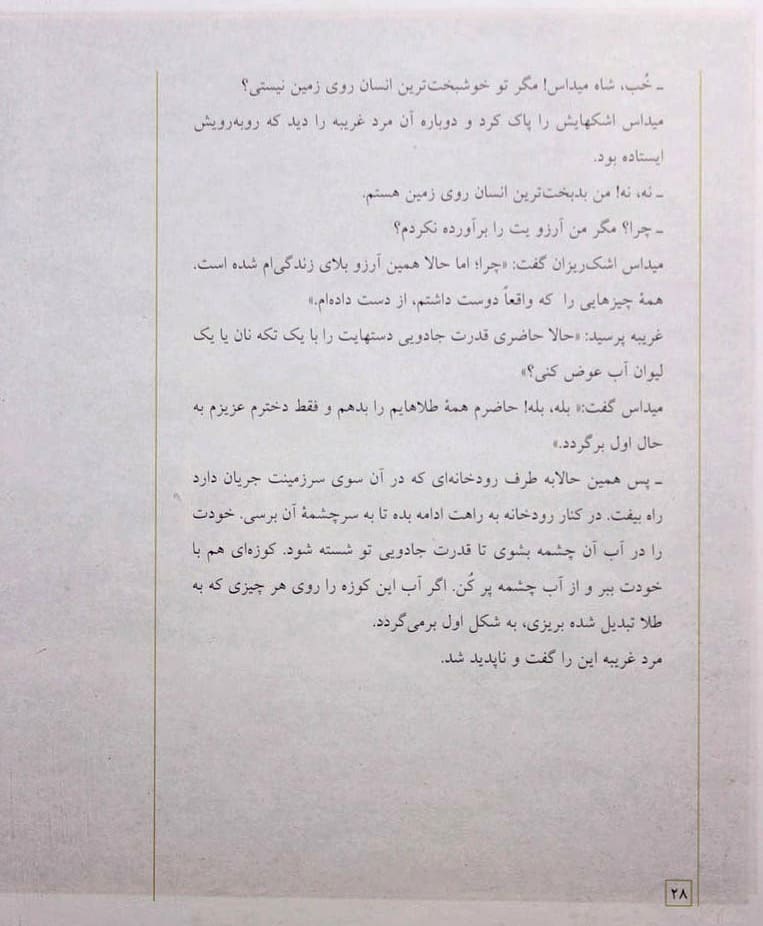 ـ خُب، شاه میداس! مگر تو خوشبخت‌ترین انسان روی زمین نیستی؟
میداس اشکهایش را پاک کرد و دوباره آن مرد غریبه را دید که روبه‌رویش
ایستاده بود.
ـ نه، نه! من بدبخت‌ترین انسان روی زمین هستم.
ـ چرا؟ مگر من آرزو یت را برآورده نکردم؟
میداس اشک‌ریزان گفت: «چرا؛ اما حالا همین آرزو بلای زندگی‌ام شده است.
همهٔ چیزهایی را که واقعاً دوست داشتم، از دست داده‌ام.»
غریبه پرسید: «حالا حاضری قدرت جادویی دستهایت را با یک تکه نان یا یک
لیوان آب عوض کنی؟»
میداس گفت:« بله، بله! حاضرم همهٔ طلاهایم را بدهم و فقط دخترم عزیزم به
حال اول برگردد.»
ـ پس همین حالابه طرف رودخانه‌ای که در آن سوی سرزمینت جریان دارد
راه بیفت. در کنار رودخانه به راهت ادامه بده تا به سرچشمهٔ آن برسی. خودت
را در آب آن چشمه بشوی تا قدرت جادویی تو شسته شود. کوزه‌ای هم با
خودت ببر و از آب چشمه پر کُن. اگر آب این کوزه را روی هر چیزی که به
طلا تبدیل شده بریزی، به شکل اول برمی‌گردد.
مرد غریبه این را گفت و ناپدید شد.
۲۸